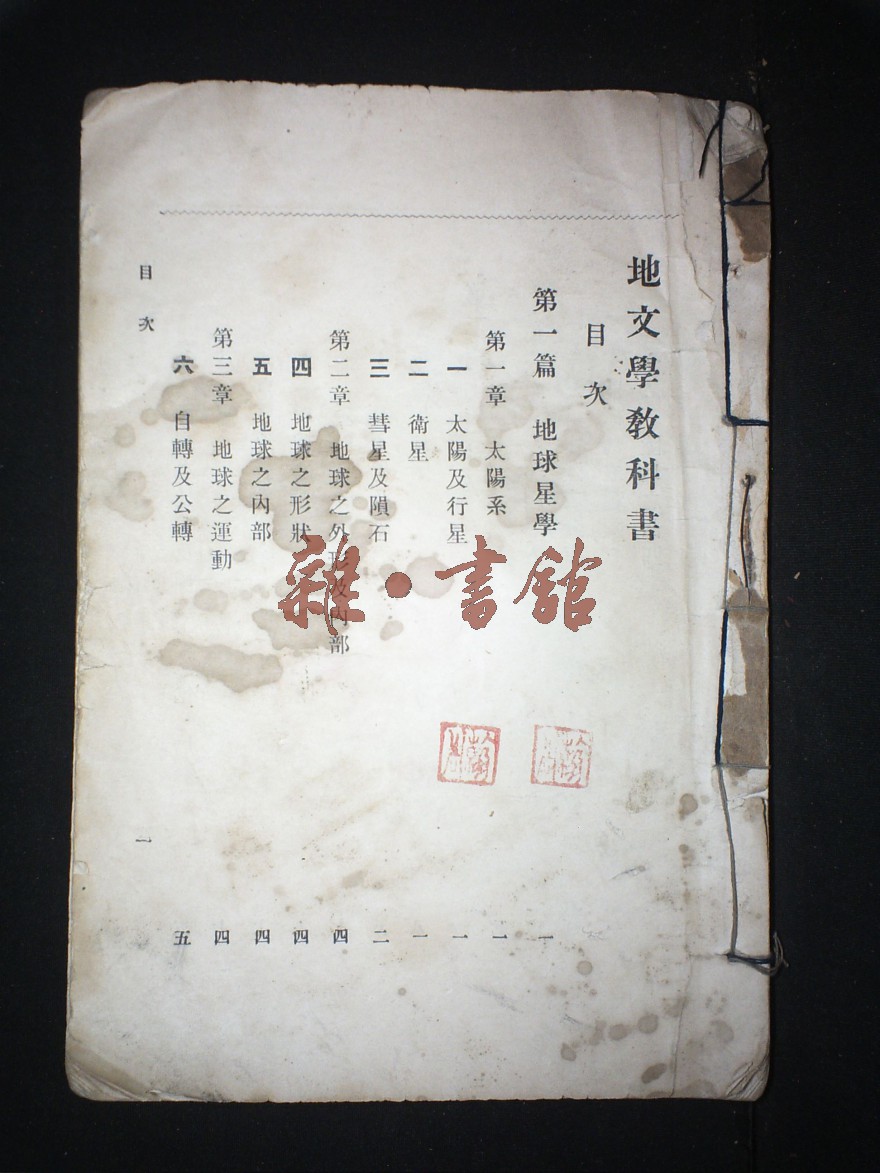 地文學教科書
目次
第一篇 地球星學 一
第一章 太陽系 一
一 太陽及行星 一
二 衛星 一
三 彗星及隕石 二
第二章 地球之外形及內部 四
四 地球之形狀 四
五 地球之內部 四
第三章 地球之運動 四
六 自轉及公轉 五
目次 一
雜·書館